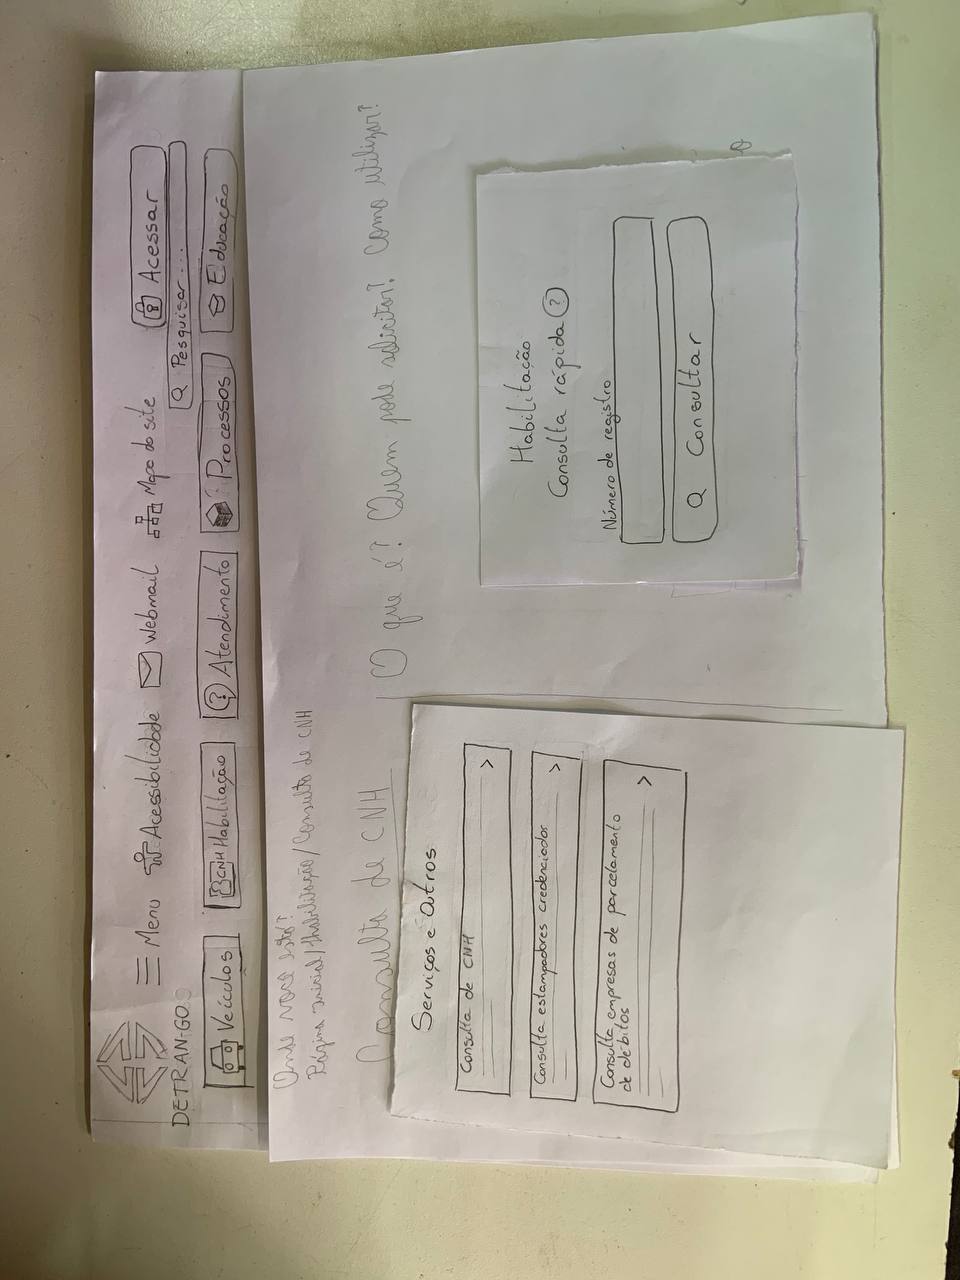 DETRAN-GO
Menu
Acessibilidade
Webmail
Mapa do site
Acessar
Pesquisar...
Veículos
CNH Habilitação
Atendimento
Processos
Educação
Onde você está?
Página inicial/Habilitação/Consulta de CNH
Consulta de CNH
O que é? Quem pode solicitar? Como utilizar?
Serviços e Outros
Consulta de CNH
>
Consulta estampadores credenciados
>
Consulta empresas de parcelamento
de débitos
>
Habilitação
Consulta rápida ?
Número de registro
Consultar